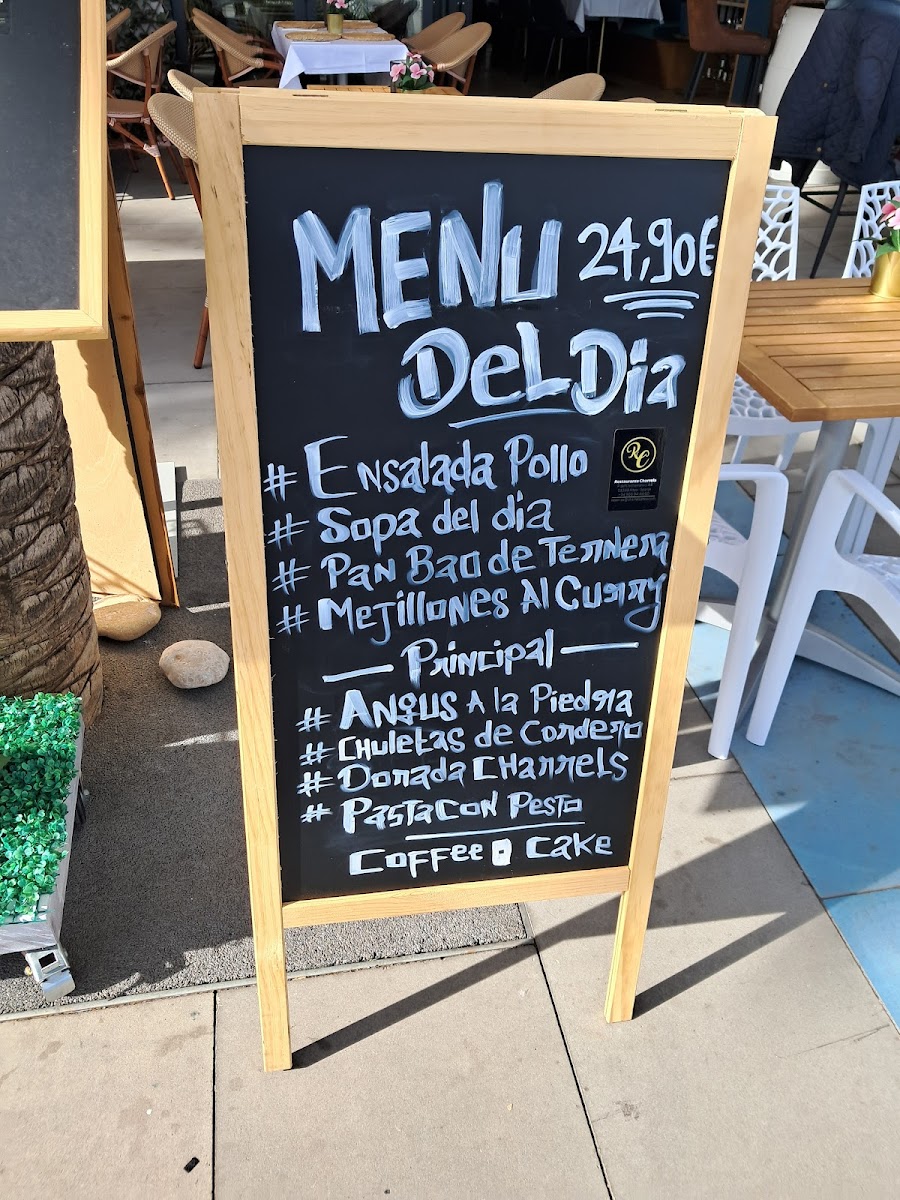 MENU 24,90€
DEL DIA
# Ensalada Pollo
RC
Restaurante Charrels
# Sopa del dia
# PAN BAO de TERNERA
# MEJILLONES Al CURRY
Principal
# ANGUS A la PiEdRA
# CHULETAS de CORdERO
# DORADA CHARRELS
# PASTA CON PESTO
COFFEE o CAKE